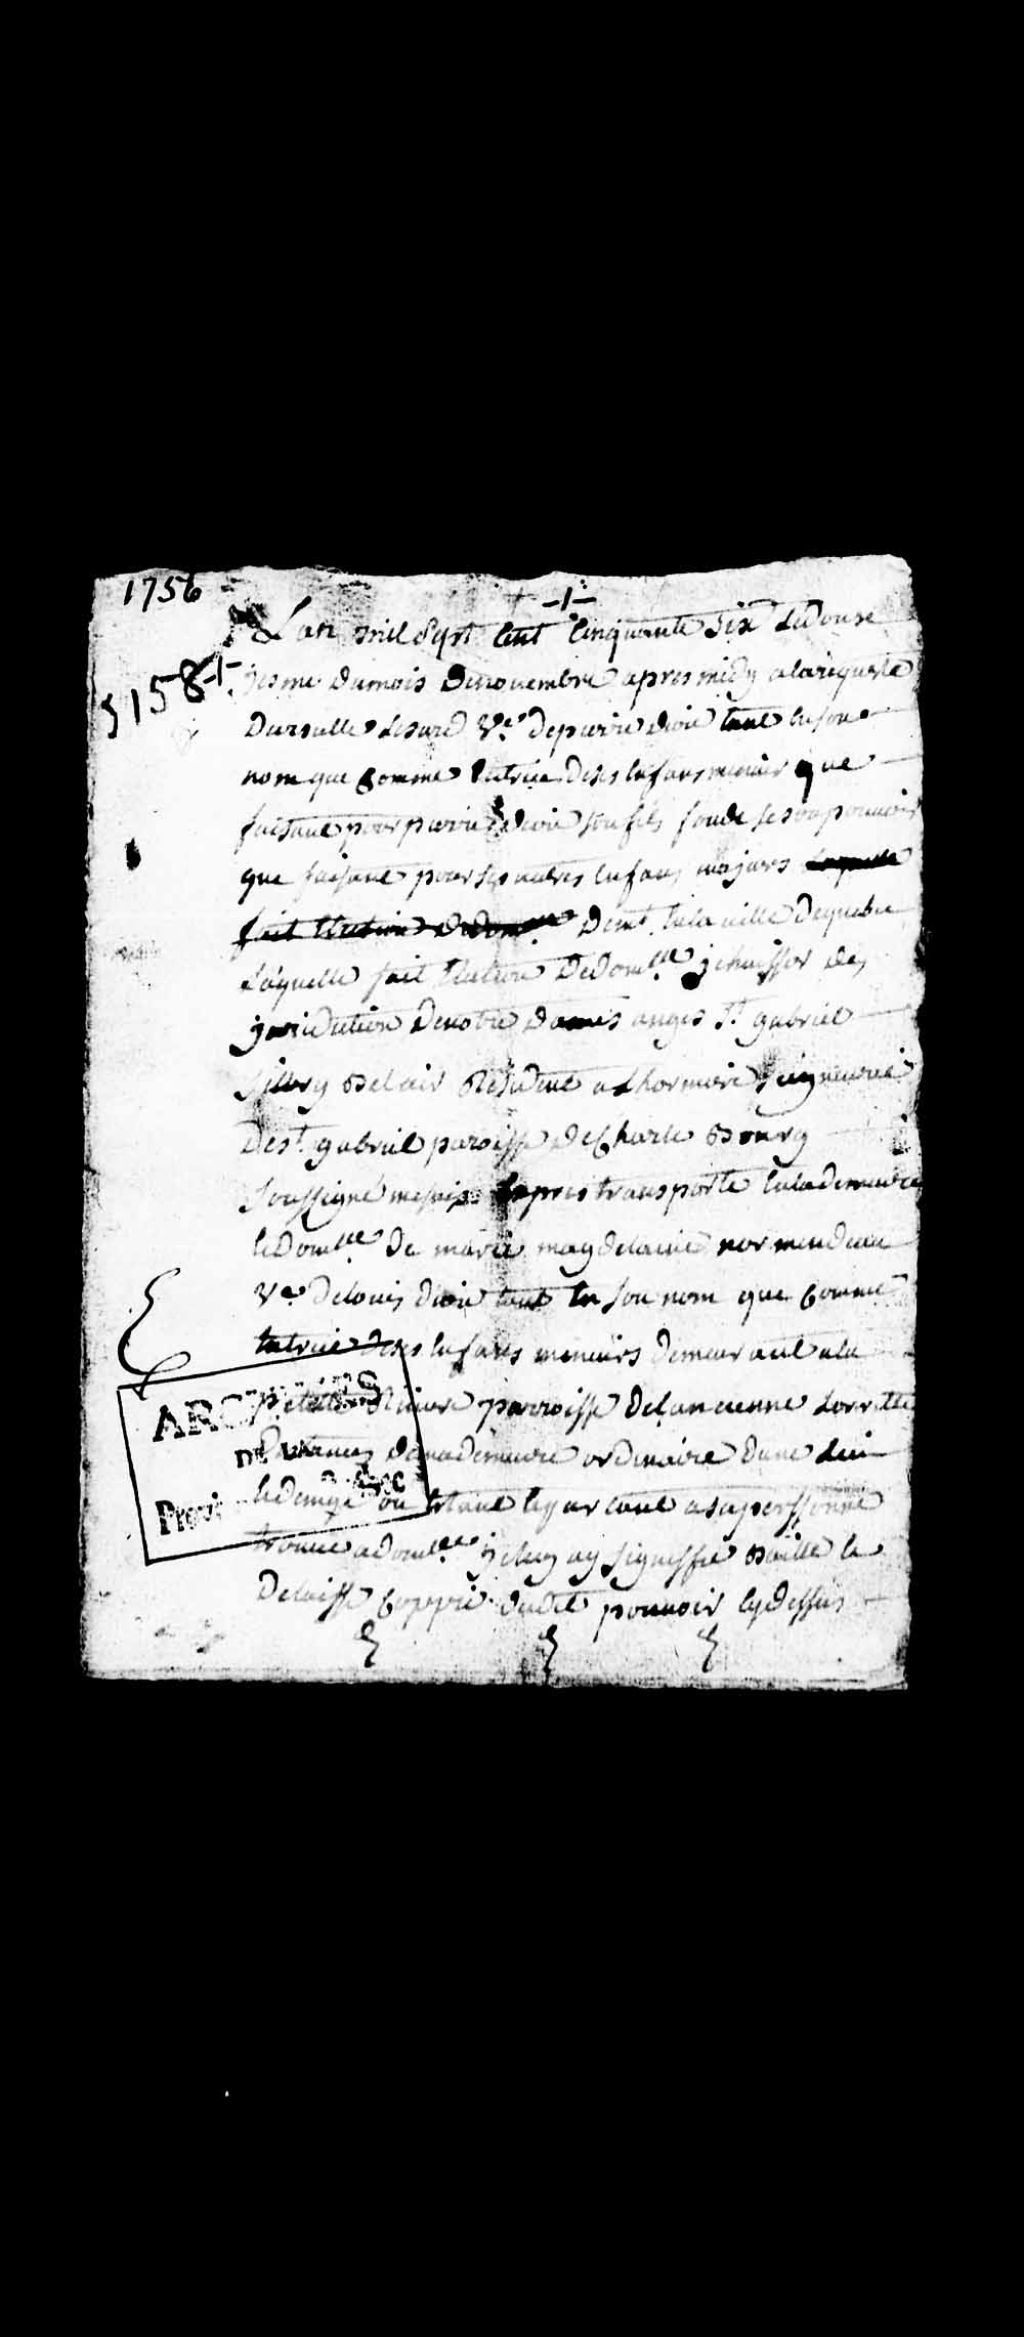 1756
-1-
5158-1-
L'an mil sept Cent Cinquante six Ledouse
jesme dumois denouembre apres midy alarequeste
Dursulle Lesard Ve. depierre tant enson
nom que Comme tutrice deses enfans mineur que
faisant pour pierre son fils fondé
que faisant pour ses autres enfans majeurs Laquelle
fait Election dedom.lle demt. enla ville dequebec
Laquelle fait Election dedom.lle huissier des
juridiction denotre dames anges St. gabriel
sillery Belair Residant a Lhormiere seigneurie
des t. gabriel paroisse decharle Bourg
soussigné transporté enlademeure
Dom.lle de marie magdelaine normendeau
Ve. delouis tant en son nom que Comme
tutrice deses enfans mineurs demeurant ala
petitte Riviere parroisse delancienne Lorrette
Distance demademeure ordinaire dune
ou Etant a sapersonne
trouvé adom.lle ay signiffié Baillé
Delaissé Coppie dudit pouvoir Cydessus
ARCHIVES
DE LA
Provi